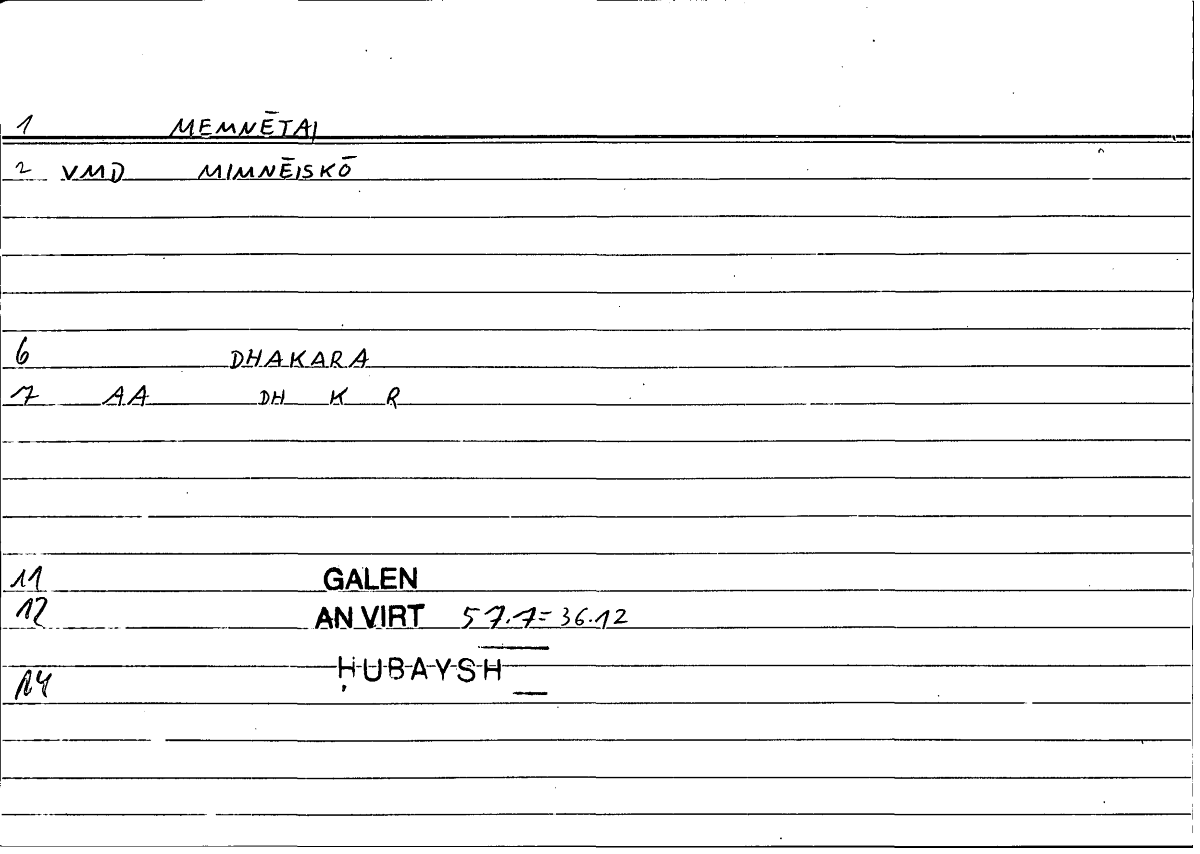 1 MEMNĒTAI
2 VMD MIMNĒISKŌ
6 DHAKARA
7 AA DH K R
11 GALEN
12 AN VIRT 57.7=36.12
14 ḤUBAYSH